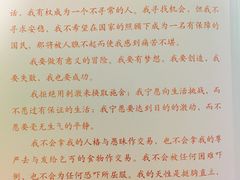 话，我有权成为一个不寻常的人。我寻找机会，但我不
寻求安稳，我不希望在国家的照顾下成为一名有保障的
国民，那将被人瞧不起而使我感到痛苦不堪。
我要做有意义的冒险。我要有梦想，我要创造，我
要失败，我也要成功。
我拒绝用刺激来换取施舍；我宁愿向生活挑战，而
不愿过有保证的生活；我宁愿要达到目的的激动，而不
愿要毫无生气的平静。
我不会拿我的人格与愚昧作交易，也不会拿我的尊
严去与发给乞丐的食物作交易。我不会被任何困难吓
倒，也不会为任何恐吓所屈服。我的天性是挺胸直立，